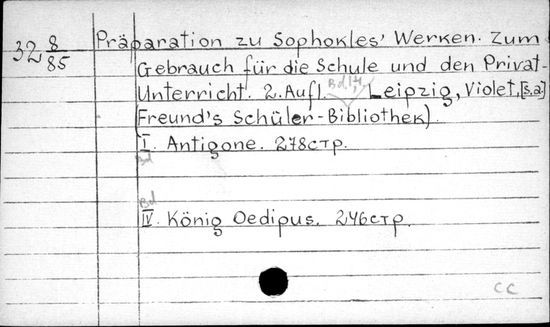 32 8/85
Präparation zu Sophokles' Werken. Zum
Gebrauch für die Schule und den Privat-
Unterricht. 2. Aufl. Bd. I, 4, Leipzig, Violet, [s.a.]
(Freund's Schüler-Bibliothek).
Bd I. Antigone. 278 стр.
Bd IV. König Oedipus. 246 стр.
CC